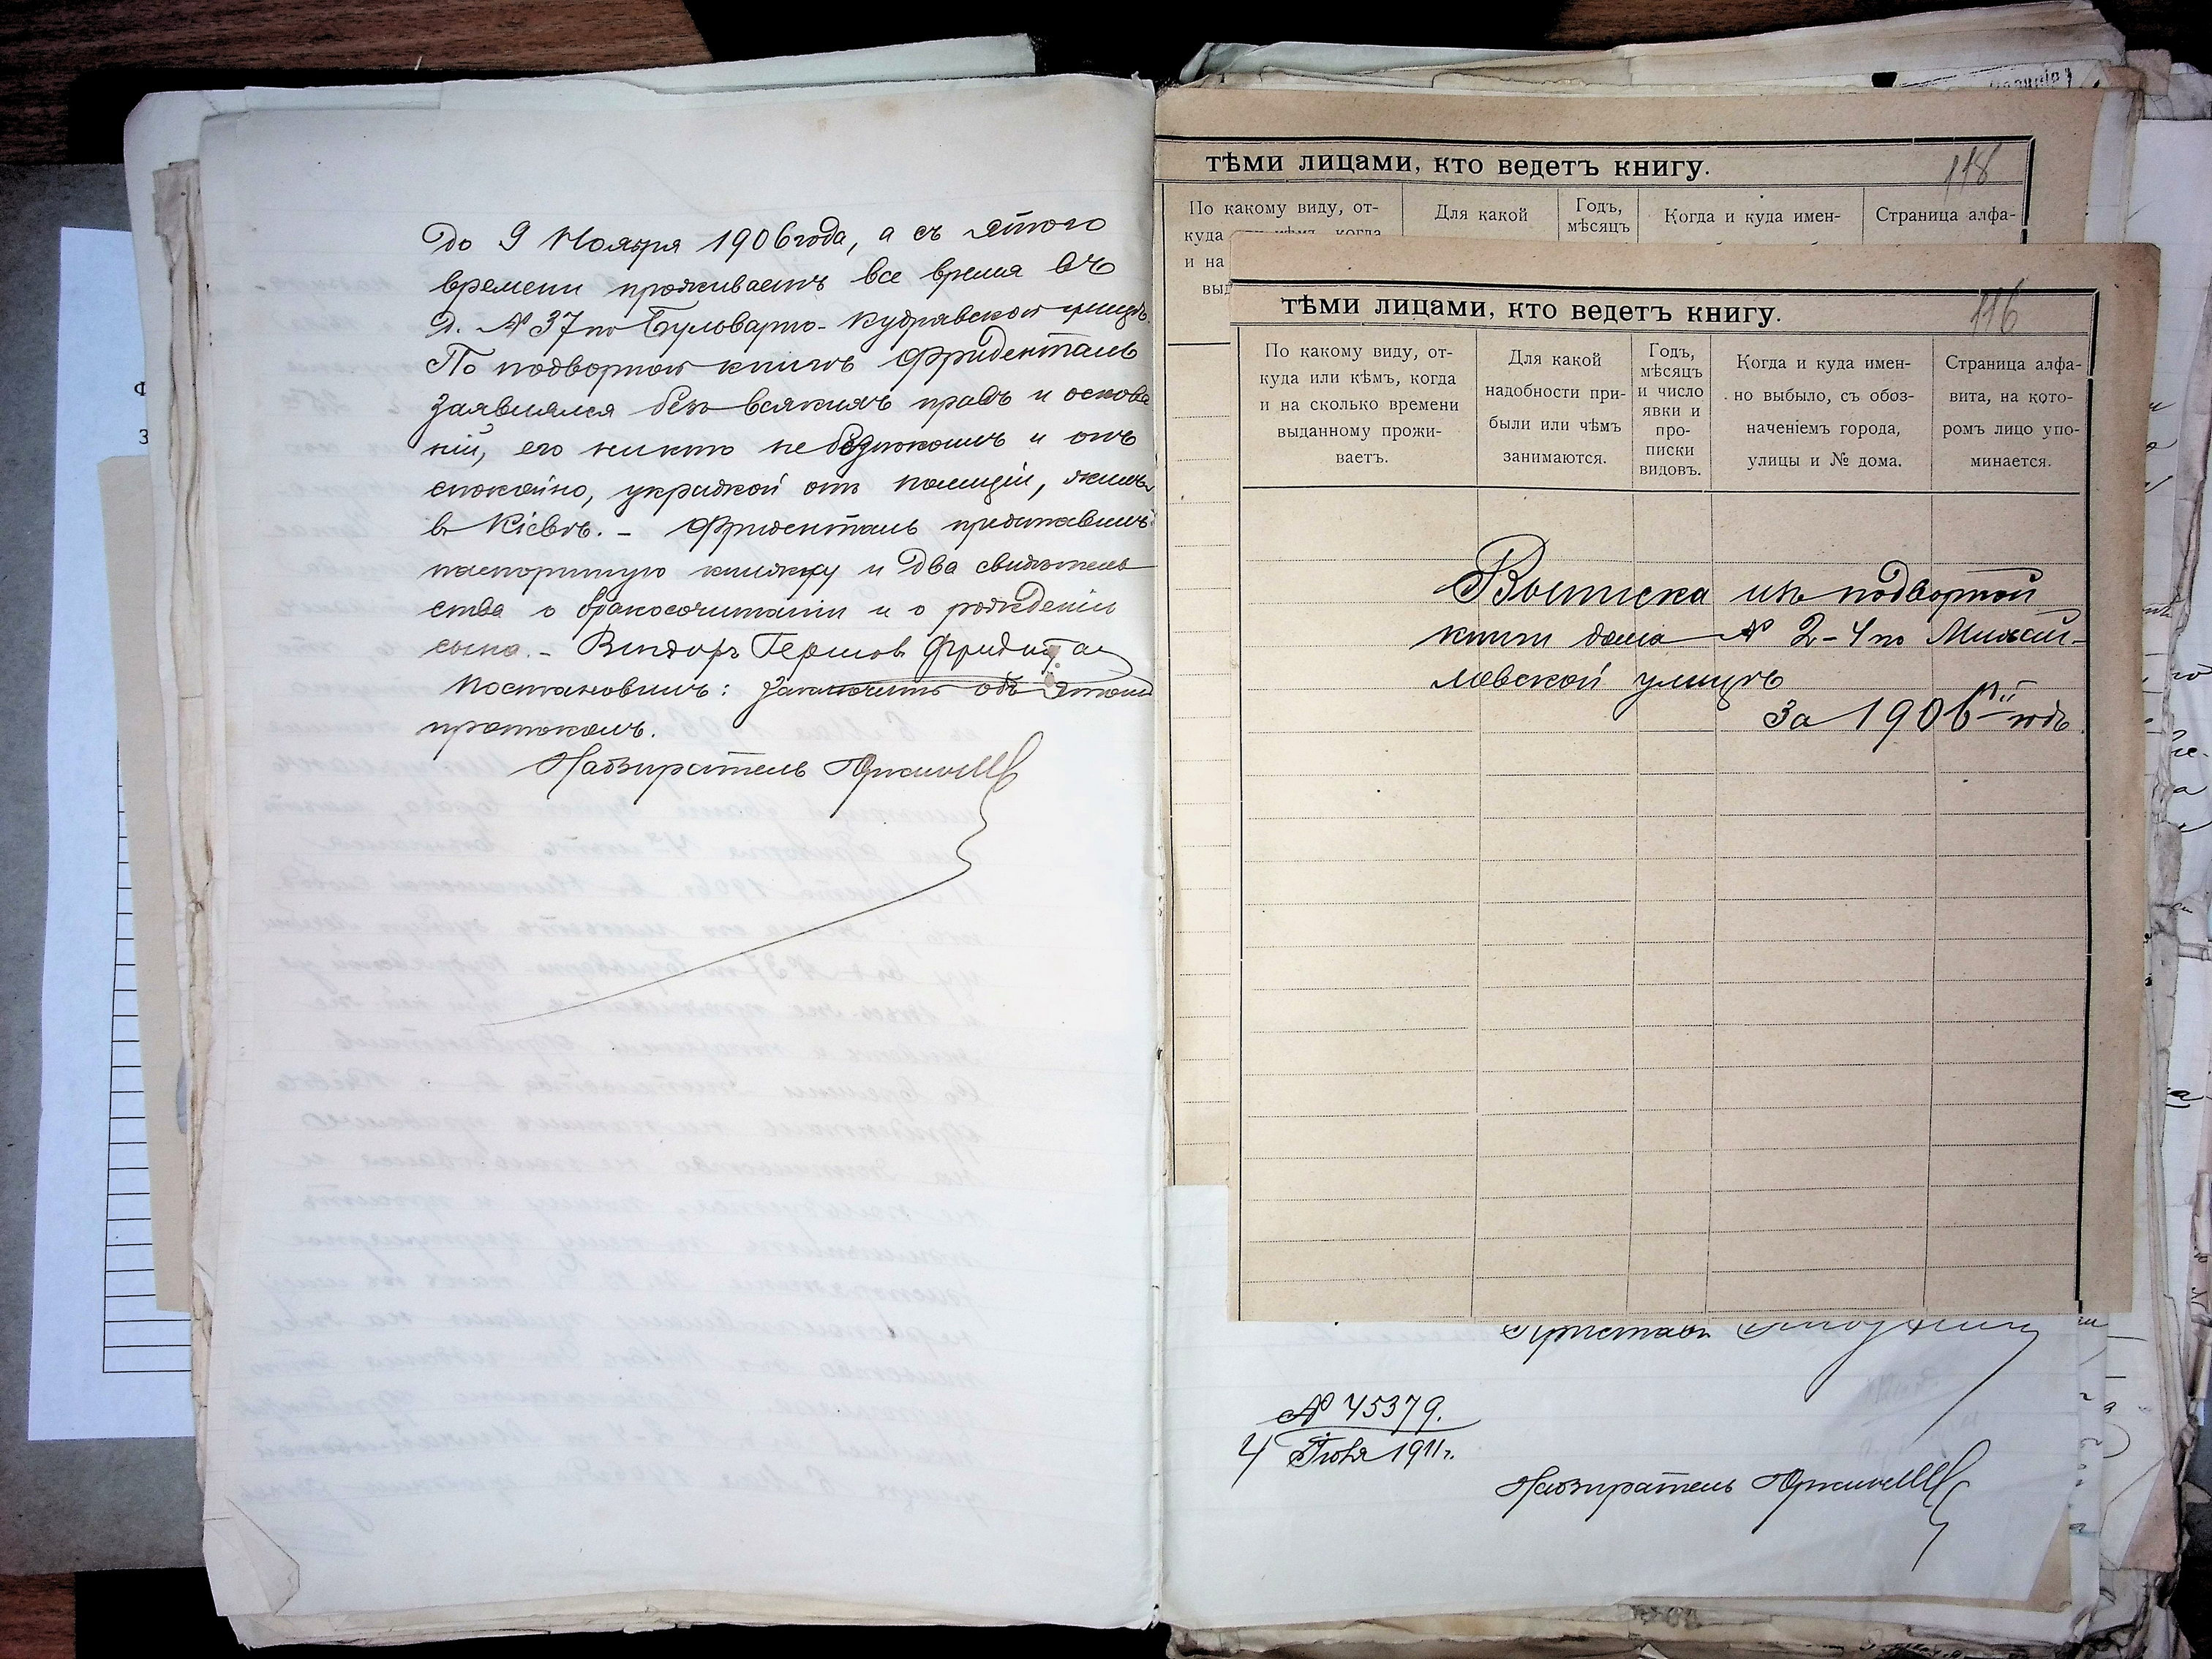 до 9 Ноября 1906 года, а съ этого
времени проживаетъ все время въ
д. № 37 по Бульварно-Кудрявской улицѣ.
По подворной книгѣ Фриденталь
заявлялся безъ всякихъ правъ и основа
ній, его никто не безпокоилъ и онъ
спокойно, украдкой отъ полиціи, жилъ
въ Кіевѣ. - Фриденталь представилъ
паспортную книжку и два свидѣтель
ства о бракосочитаніи и о рожденіи
сына. -
Постановилъ: заключить объ этомъ
протоколъ.
Надзиратель
тѣми лицами, кто ведетъ книгу.
118
По какому виду, от-
куда
и на
выд
Для какой
Годъ,
мѣсяцъ
Когда и куда имен-
Страница алфа-
тѣми лицами, кто ведетъ книгу.
116
По какому виду, от-
куда или кѣмъ, когда
и на сколько времени
выданному прожи-
ваетъ.
Для какой
надобности при-
были или чѣмъ
занимаются.
Годъ,
мѣсяцъ
и число
явки и
про-
писки
видовъ.
Когда и куда имен-
но выбыло, съ обоз-
наченіемъ города,
улицы и № дома.
Страница алфа-
вита, на кото-
ромъ лицо упо-
минается.
Выписка изъ подворной
книги дома № 2-4 по Михай-
ловской улицѣ
За 1906 годъ.
Приставъ
№ 45379.
4 Іюня 1911 г.
Надзиратель